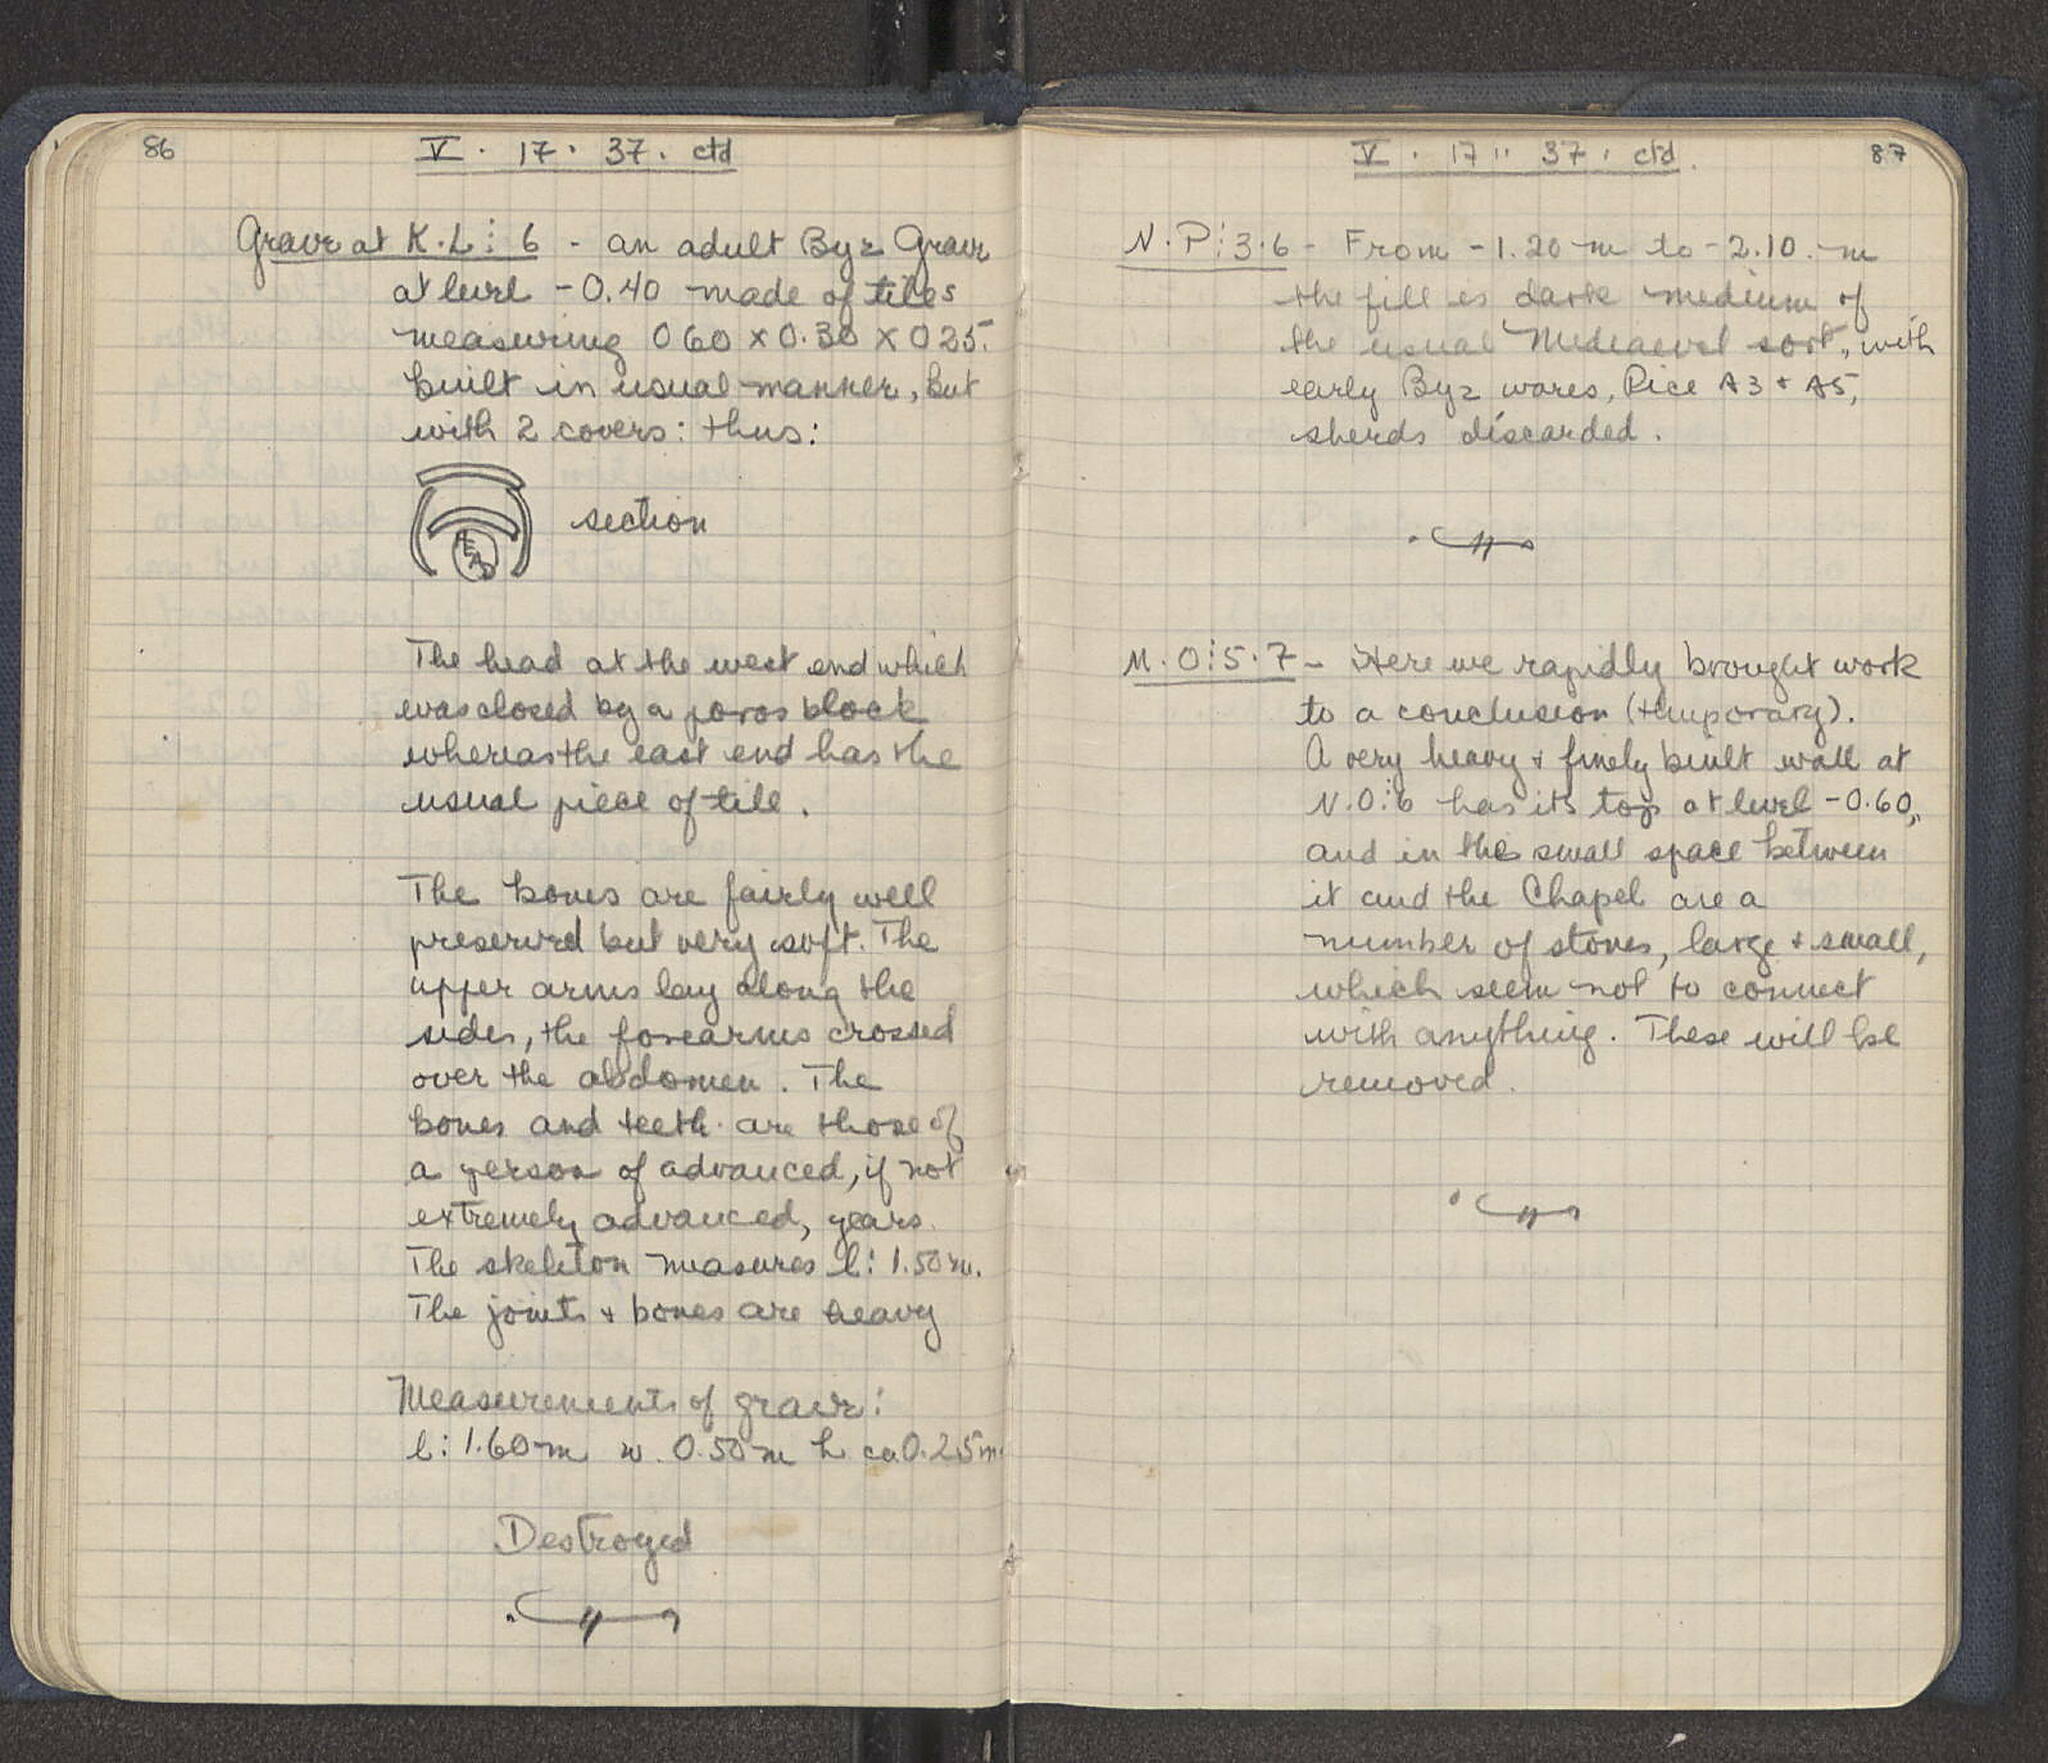 86
V · 17 · 37 · ctd
Grave at K·L⋮6 - an adult Byz Grave
at level -0.40 made of tiles
measuring 060 x 0.30 x 025.
built in usual manner, but
with 2 covers: thus:
HEAD
section
The head at the west end which
was closed by a poros block
whereas the east end has the
usual piece of tile.
The bones are fairly well
preserved but very soft. The
upper arms lay along the
sides, the forearms crossed
over the abdomen. The
bones and teeth are those of
a person of advanced, if not
extremely advanced, years.
The skeleton measures l: 1.50 m.
The joints + bones are heavy
Measurements of grave:
l: 1.60 m w. 0.50 m h ca 0.25 m.
Destroyed
V · 17 " 37 · ctd.
87
N·P⋮3·6 - From -1.20 m to -2.10. m
the fill is dark medium of
the usual Mediaeval sort, with
early Byz wares, Rice A3 + A5,
sherds discarded.
M·O⋮5·7 - Here we rapidly brought work
to a conclusion (temporary).
A very heavy + finely built wall at
N·O⋮6 has its top at level -0.60,
and in the small space between
it and the Chapel are a
number of stones, large + small,
which seem not to connect
with anything. These will be
removed.